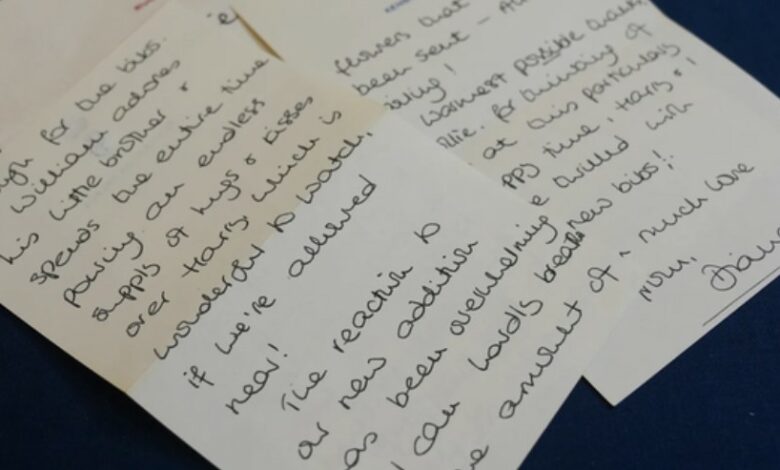 ugh for the bibs.
William adores
his little brother &
spends the entire time
pouring an endless
supply of hugs & kisses
over Harry, which is
wonderful to watch,
if we're allowed
near!
The reaction to
our new addition
as been overwhelming
I can hardly breath
e amount of
flowers that
been sent -
warmest possible thanks,
for thinking of
at this particularly
ppy time, Harry & I
e thrilled with
new bibs!
much love
from,
Diana